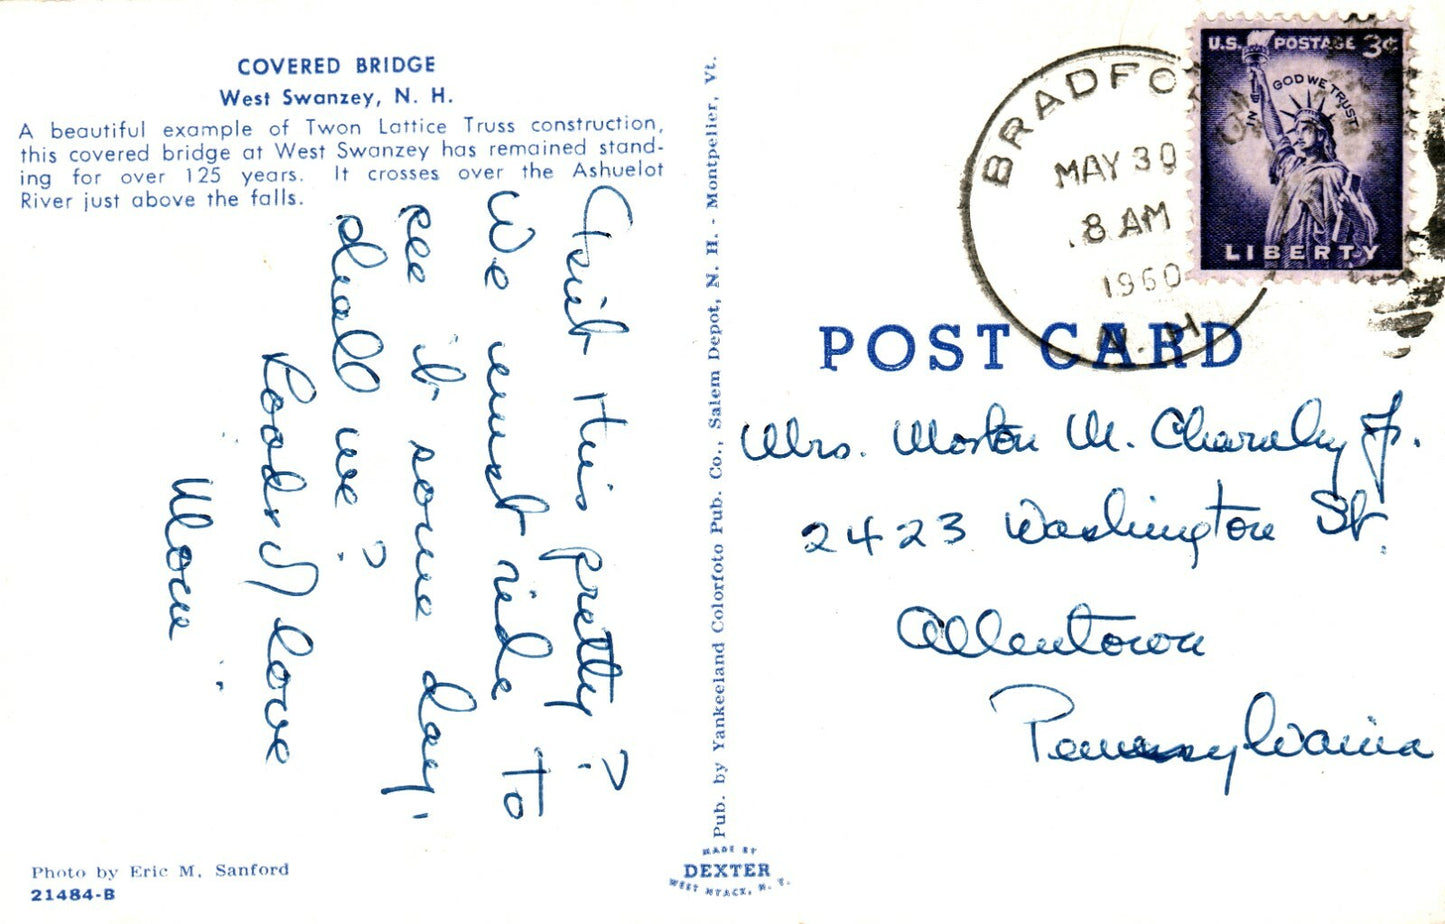 COVERED BRIDGE
West Swanzey, N. H.
A beautiful example of Twon Lattice Truss construction,
this covered bridge at West Swanzey has remained stand-
ing for over 125 years. It crosses over the Ashuelot
River just above the falls.
Isn't this pretty?
We must ride to
see it some day,
shall we?
Loads of love
Mom
Photo by Eric M. Sanford
21484-B
Pub. by Yankeeland Colorfoto Pub. Co., Salem Depot, N. H. - Montpelier, Vt.
MADE BY
DEXTER
WEST NYACK, N. Y.
BRADFO
MAY 30
8 AM
1960
N.H.
U.S. POSTAGE 3¢
IN GOD WE TRUST
LIBERTY
POST CARD
Mrs. Morton M. Charnley Jr.
2423 Washington St.
Allentown
Pennsylvania